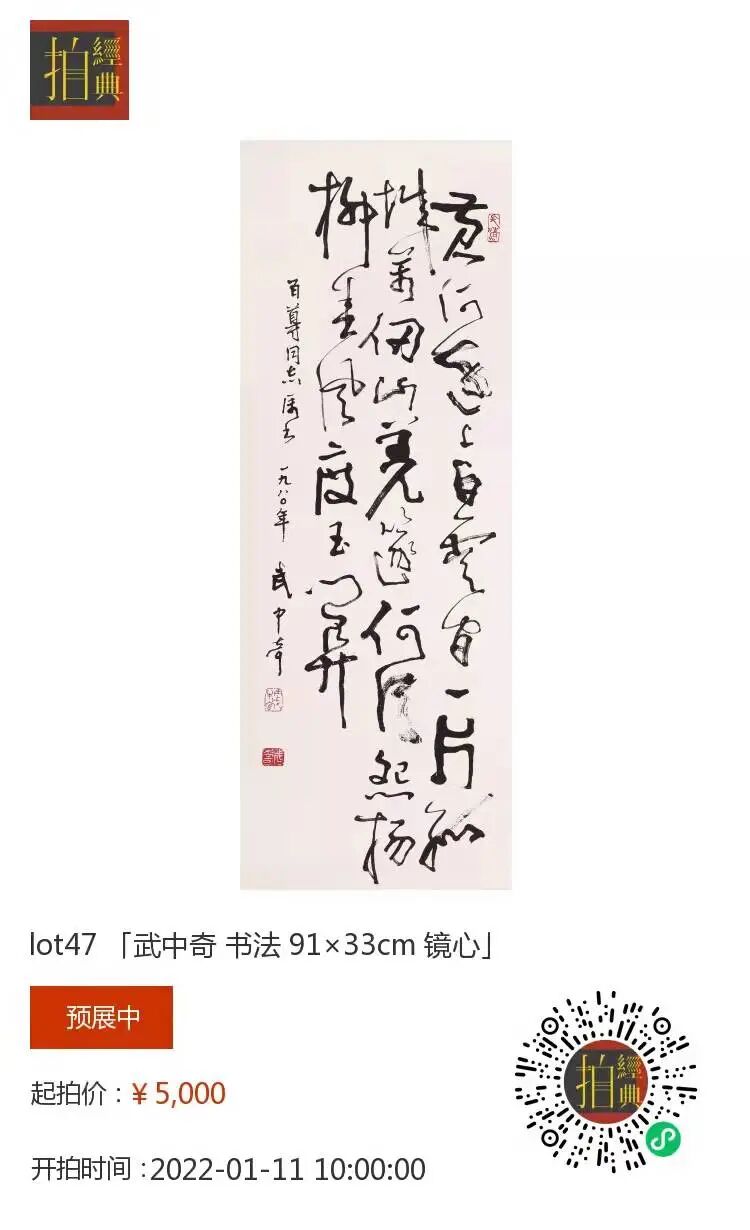 經典拍
黄河遠上白雲间一片孤
城萬仞山羌篴何須怨楊
柳春风度玉门關
百尊同志属书 一九八〇年 武中奇
lot47 「武中奇 书法 91×33cm 镜心」
预展中
起拍价：¥ 5,000
开拍时间：2022-01-11 10:00:00
經典拍